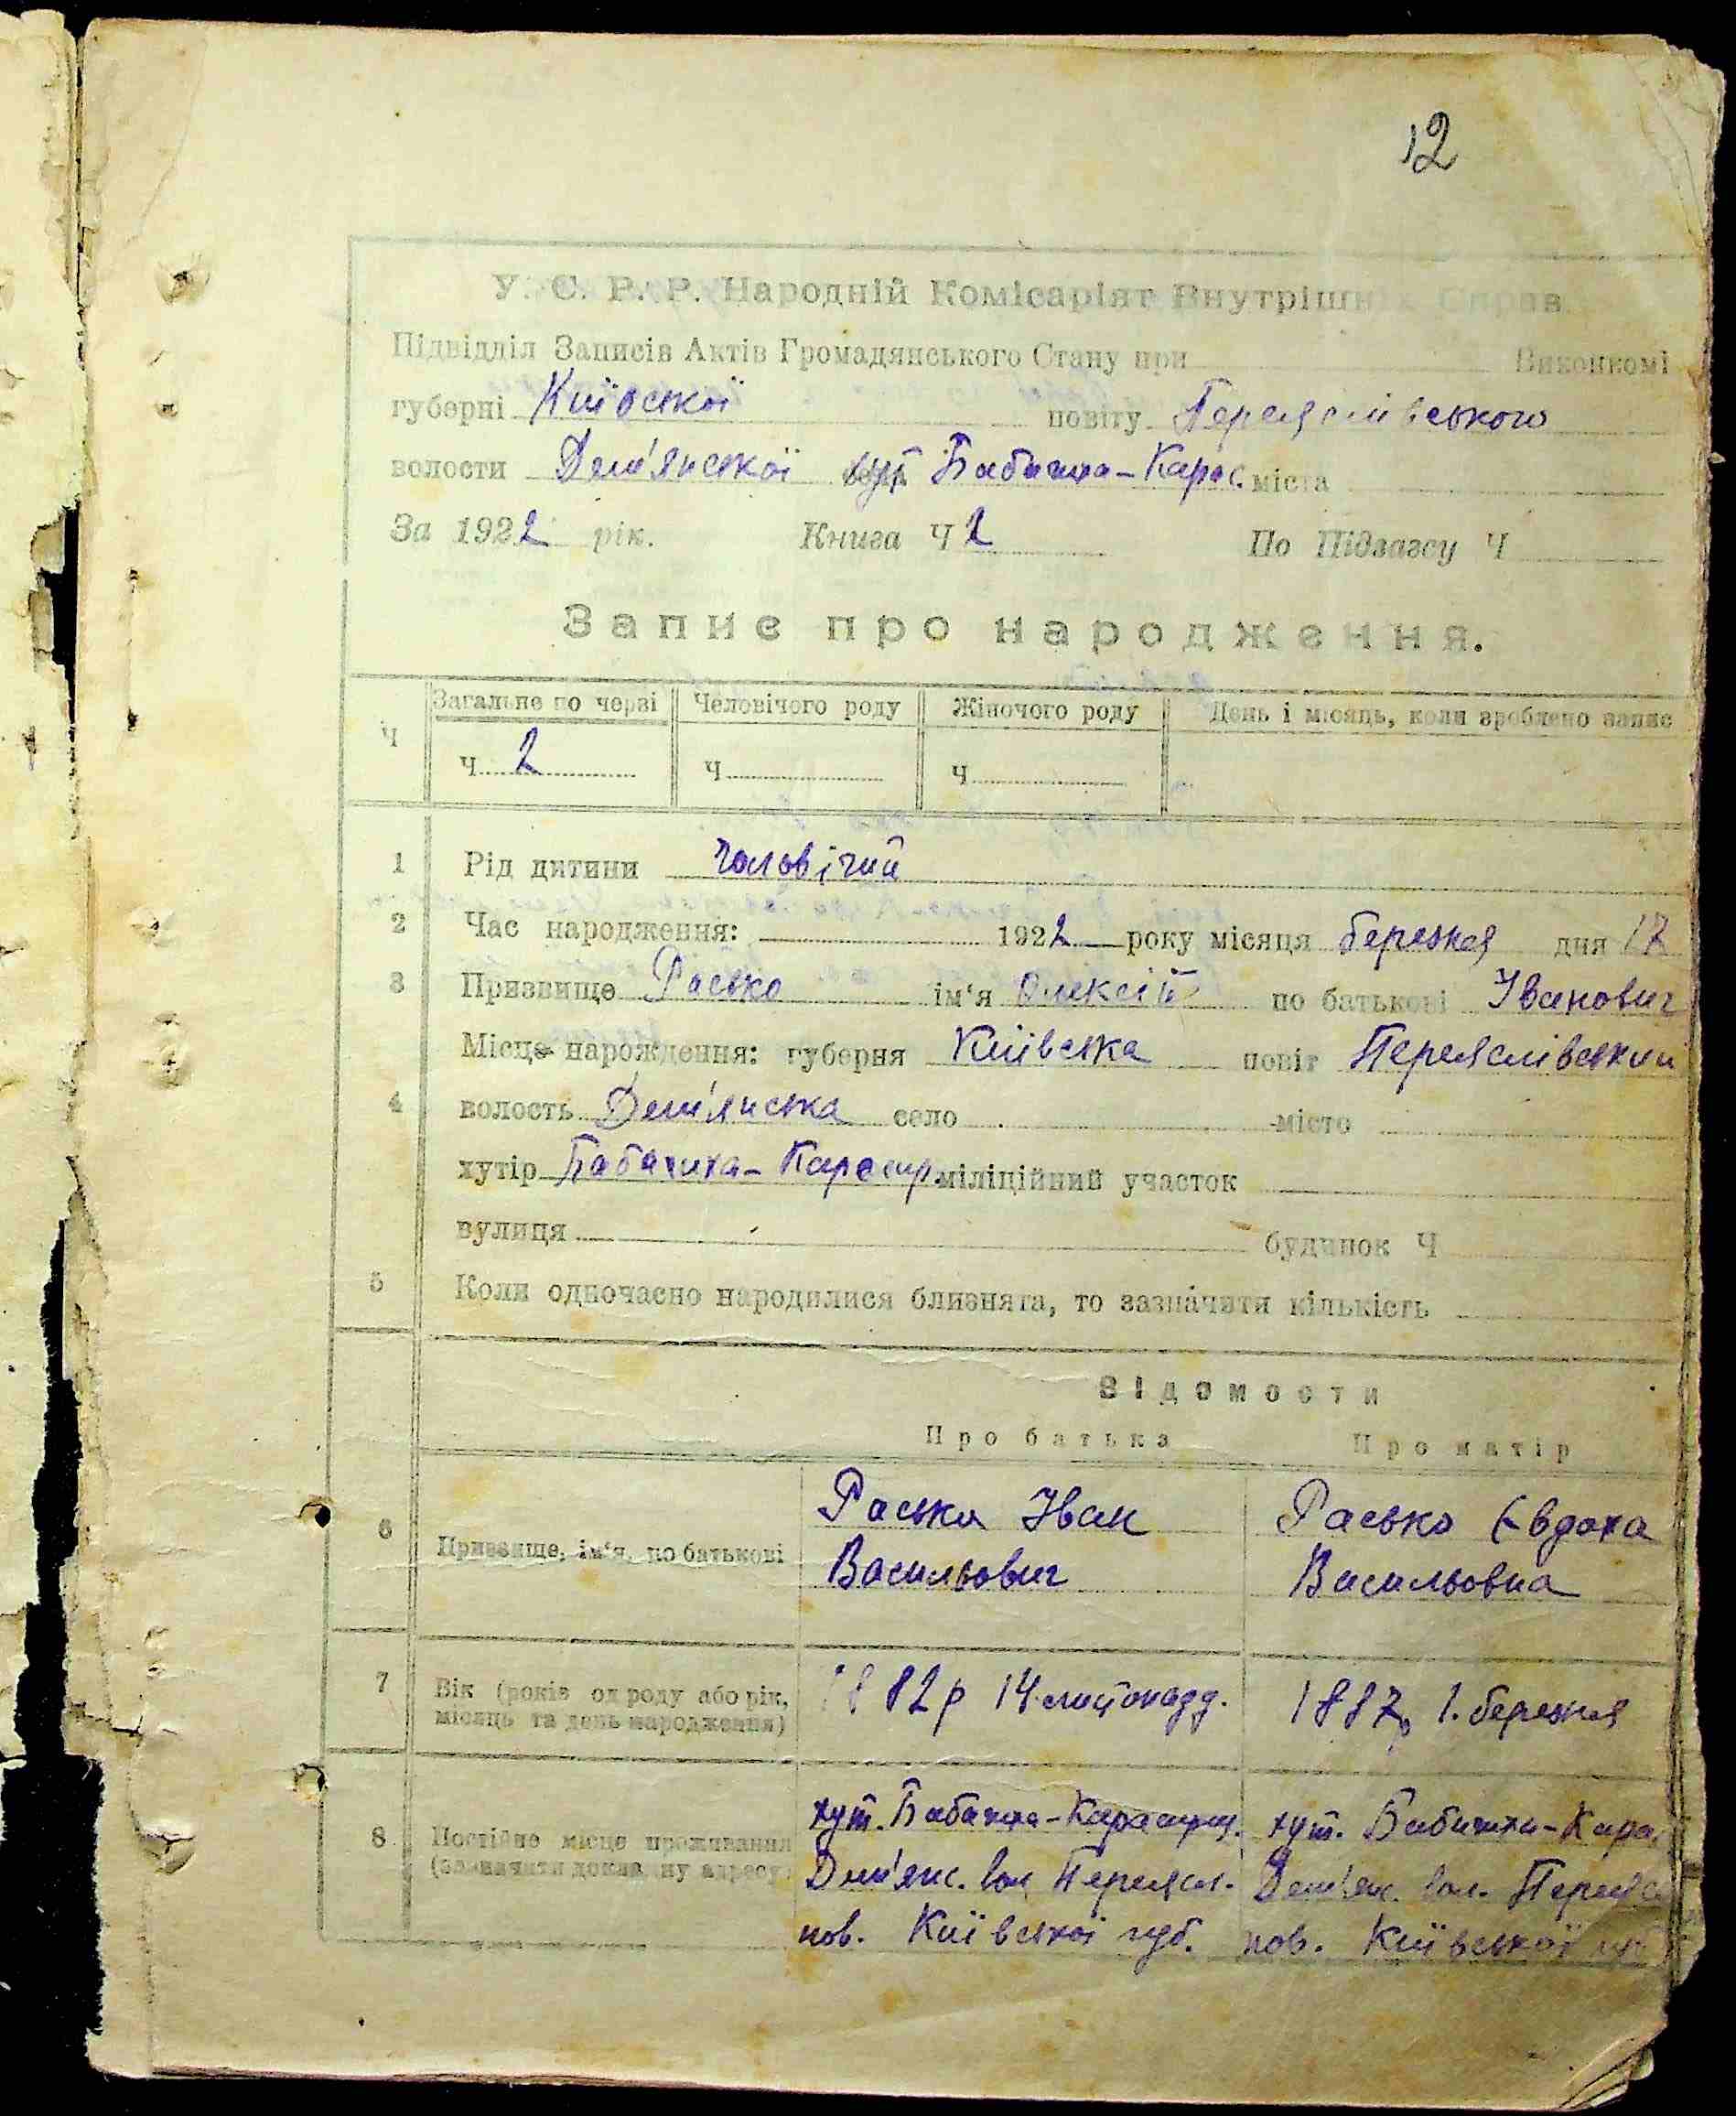 12
У. С. Р. Р. Народній Комісаріят Внутрішніх Справ.
Підвідділ Записів Актів Громадянського Стану при Виконкомі
губерні Київської повіту Переяслівського
волости Дем'янської хут Бабачиха-Карас. міста
За 1922 рік. Книга Ч 2 По Підзагсу Ч
Запис про народження.
Ч Загальне по черзі Человічого роду Жіночого роду День і місяць, коли зроблено запис
Ч 2 Ч Ч
1 Рід дитини чоловічий
2 Час народження: 1922 року місяця березня дня 17
3 Призвище Расько ім'я Олексій по батькові Іванович
Місце нарождення: губерня Київська повіт Переяслівський
4 волость Дем'янська село місто
хутір Бабачиха- міліційний участок
вулиця будинок Ч
5 Коли одночасно народилися близнята, то зазначити кількість
Відомости
Про батька Про матір
6 Призвище, ім'я, по батькові Расько Іван Расько Євдоха
Васильович Васильовна
7 Вік (років од роду або рік, місяць та день народження) 1882р 14 листопад. 1887р 1. березня
8 Постійне місце проживання (зазначити докладну адресу) хут. Бабачиха- хут. Бабачиха-Кара.
Дем'янс. вол. Переясл. Дем'янс. вол. Переяс
пов. Київської губ. пов. Київської губ